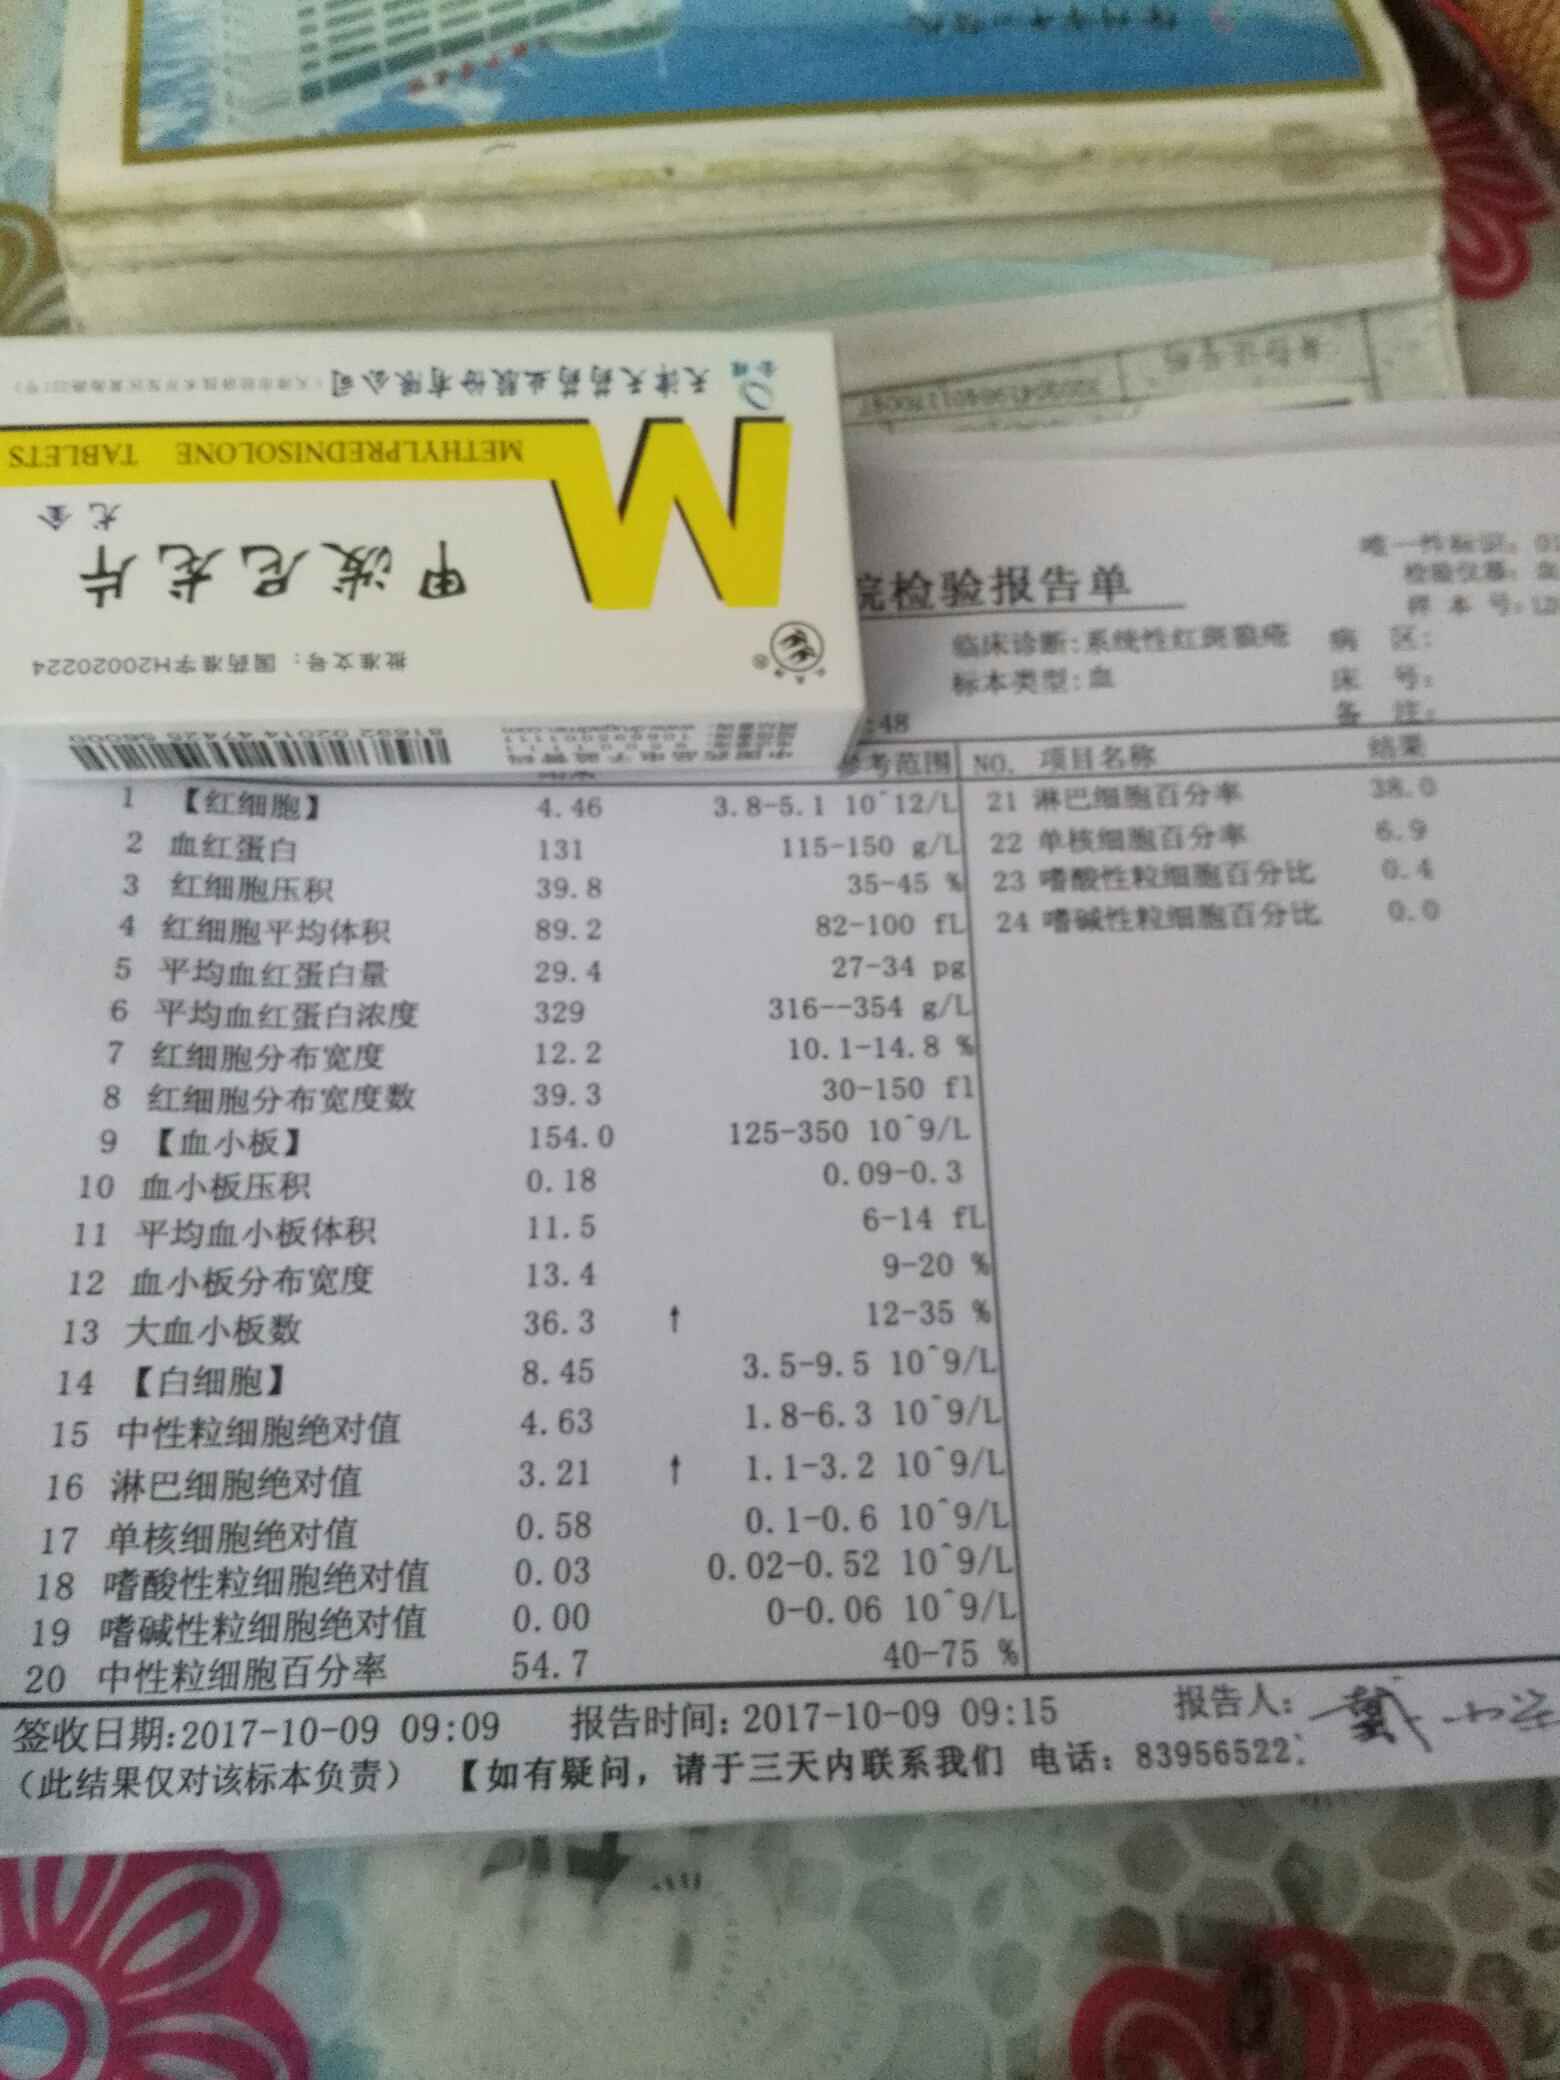 天津天药药业股份有限公司
METHYLPREDNISOLONE TABLETS
尤金
甲泼尼龙片
批准文号：国药准字H20020224
81692 02014 47425 56000
院检验报告单
临床诊断:系统性红斑狼疮 病 区:
标本类型:血 床 号:
:48 备 注:
参考范围 NO. 项目名称 结果
1 【红细胞】 4.46 3.8-5.1 10^12/L 21 淋巴细胞百分率 38.0
2 血红蛋白 131 115-150 g/L 22 单核细胞百分率 6.9
3 红细胞压积 39.8 35-45 % 23 嗜酸性粒细胞百分比 0.4
4 红细胞平均体积 89.2 82-100 fL 24 嗜碱性粒细胞百分比 0.0
5 平均血红蛋白量 29.4 27-34 pg
6 平均血红蛋白浓度 329 316--354 g/L
7 红细胞分布宽度 12.2 10.1-14.8 %
8 红细胞分布宽度数 39.3 30-150 fl
9 【血小板】 154.0 125-350 10^9/L
10 血小板压积 0.18 0.09-0.3
11 平均血小板体积 11.5 6-14 fL
12 血小板分布宽度 13.4 9-20 %
13 大血小板数 36.3 ↑ 12-35 %
14 【白细胞】 8.45 3.5-9.5 10^9/L
15 中性粒细胞绝对值 4.63 1.8-6.3 10^9/L
16 淋巴细胞绝对值 3.21 ↑ 1.1-3.2 10^9/L
17 单核细胞绝对值 0.58 0.1-0.6 10^9/L
18 嗜酸性粒细胞绝对值 0.03 0.02-0.52 10^9/L
19 嗜碱性粒细胞绝对值 0.00 0-0.06 10^9/L
20 中性粒细胞百分率 54.7 40-75 %
签收日期:2017-10-09 09:09 报告时间:2017-10-09 09:15 报告人:
（此结果仅对该标本负责） 【如有疑问，请于三天内联系我们 电话：83956522